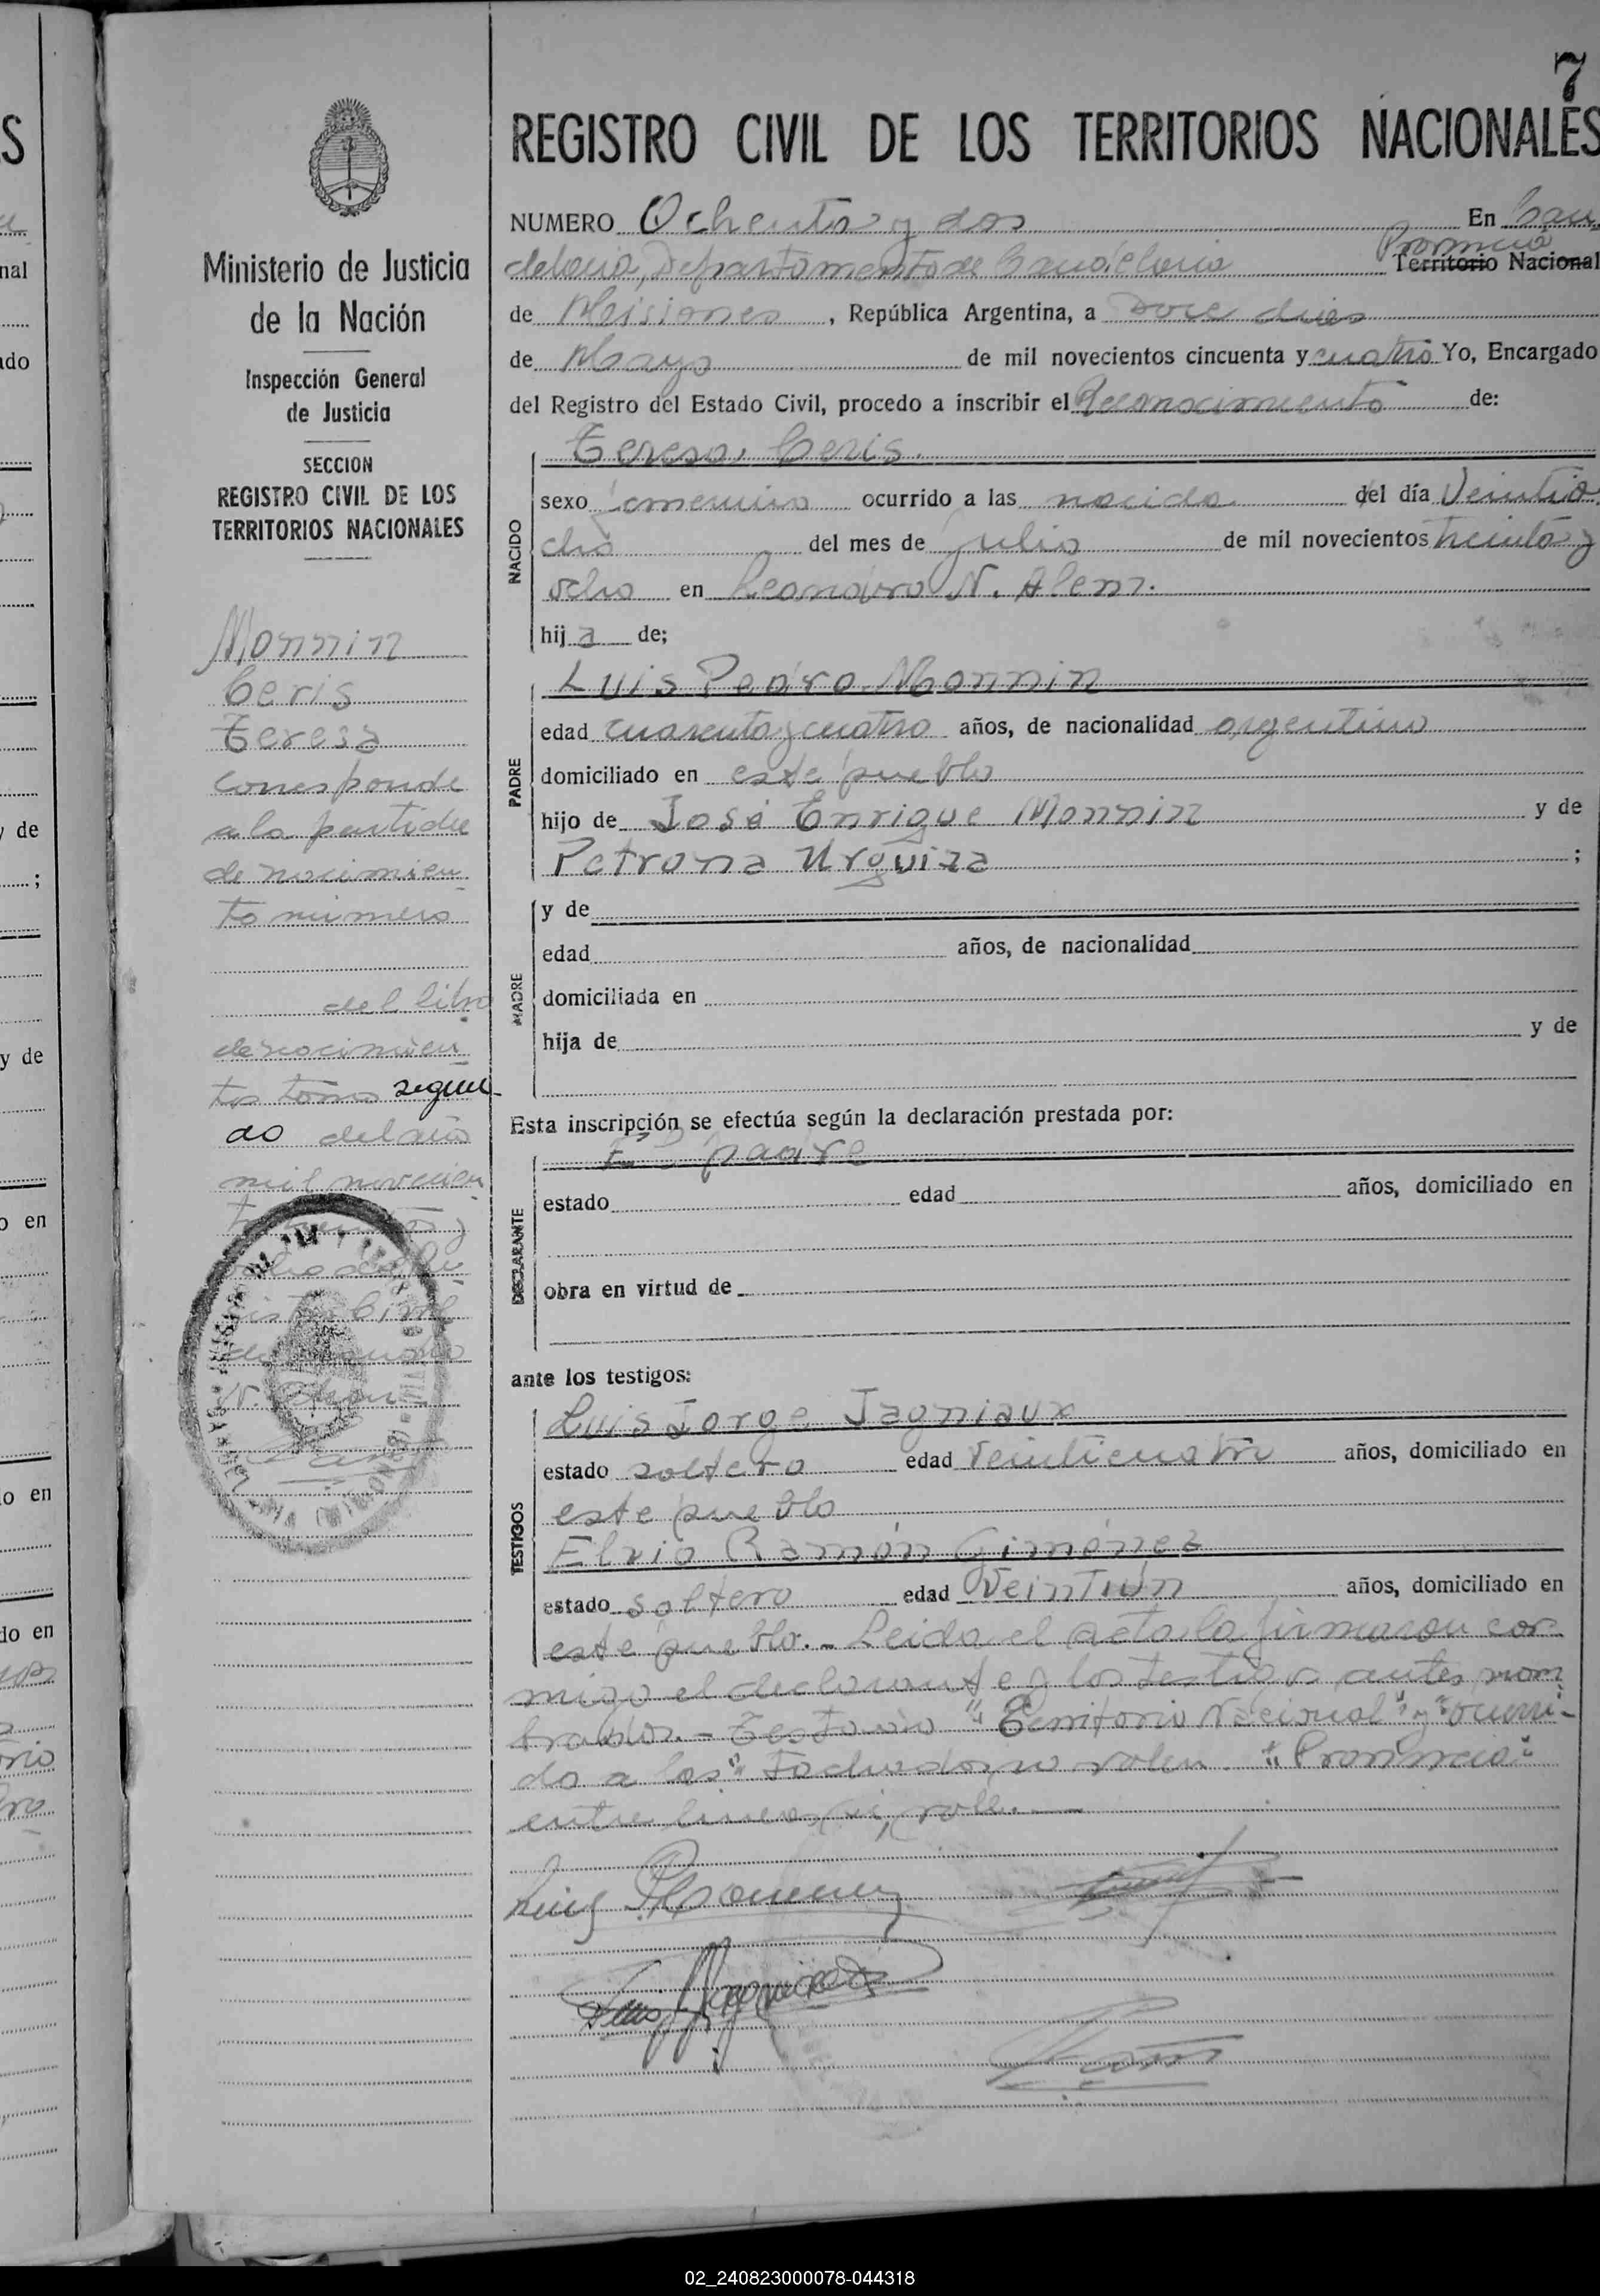 7
REGISTRO CIVIL DE LOS TERRITORIOS NACIONALES
Ministerio de Justicia
de la Nación
Inspección General
de Justicia
SECCION
REGISTRO CIVIL DE LOS
TERRITORIOS NACIONALES
Monnin
Ceris
Teresa
corresponde
a la partida
de nacimien
to número
del libro
de nacimien
tos tomo segun
do del año
mil novecien
NUMERO Ochenta y dos En Can
delaria, Departamento de Candelaria Provincia Territorio Nacional
de Misiones, República Argentina, a doce dias
de Mayo de mil novecientos cincuenta y cuatro Yo, Encargado
del Registro del Estado Civil, procedo a inscribir el Reconocimiento de:
Teresa Ceris.
NACIDO
sexo femenino ocurrido a las nacida del día Veintio
cho del mes de julio de mil novecientos treinta y
ocho en Leandro N. Alem.
hija de;
PADRE
Luis Pedro Monnin
edad cuarenta y cuatro años, de nacionalidad argentino
domiciliado en este pueblo
hijo de José Enrique Monnin y de
Petrona Urquiza ;
MADRE
y de
edad años, de nacionalidad
domiciliada en
hija de y de
Esta inscripción se efectúa según la declaración prestada por:
DECLARANTE
El padre
estado edad años, domiciliado en
obra en virtud de
ante los testigos:
TESTIGOS
Luis Jorge Jagniaux
estado soltero edad veinticuatro años, domiciliado en
este pueblo
Elvio Ramón Giménez
estado soltero edad Veintiún años, domiciliado en
este pueblo. - Leida el acta la firmaron con
migo el declarante y los testigos antes nom
brados. - Testado "Territorio Nacional" y "ocurri-
do a las" Tachado no valen. "Provincia"
entre lineas, si, vale. -
02_240823000078-044318